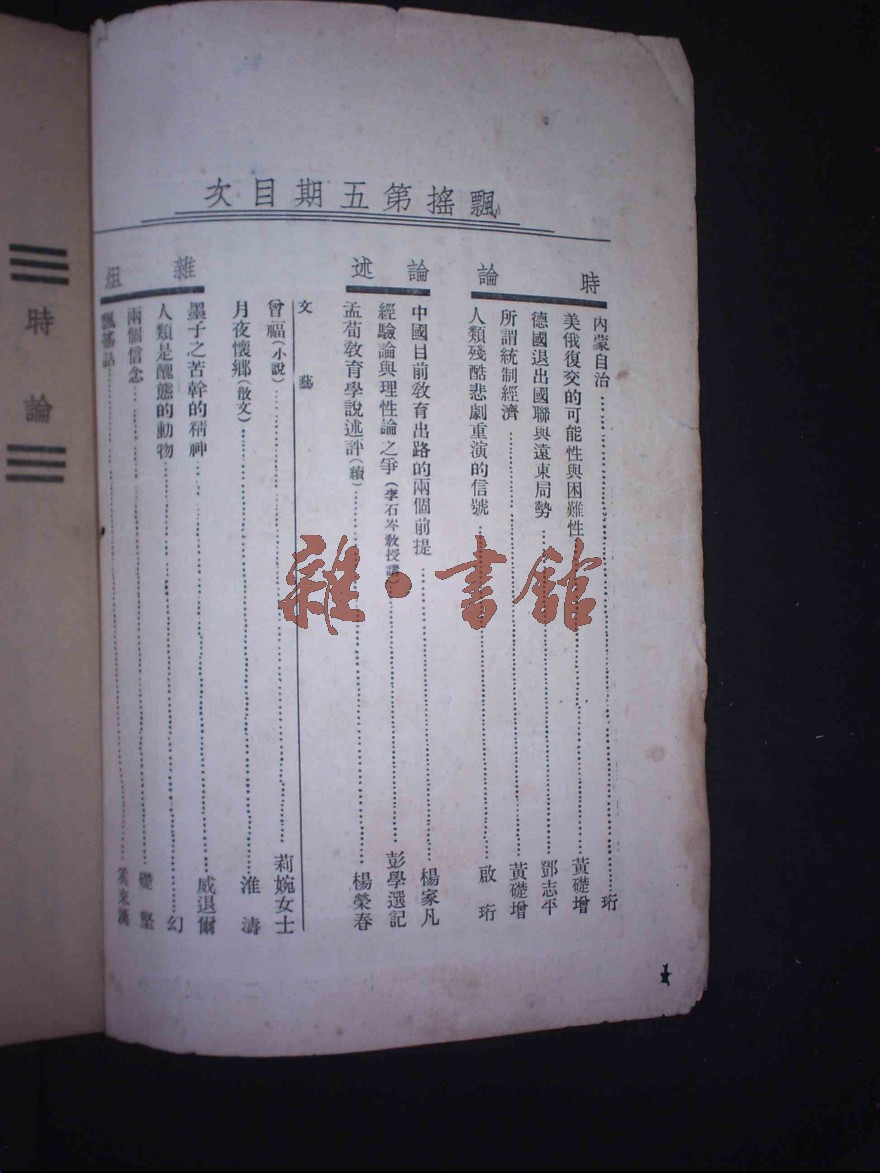 飄搖第五期目次
時論
內蒙自治……珩
美俄復交的可能性與困難性……黃礎增
德國退出國聯與遠東局勢……鄧志平
所謂統制經濟……黃礎增
人類殘酷悲劇重演的信號……啟珩
論述
中國目前教育出路的兩個前提……楊家凡
經驗論與理性論之爭(李石岑教授講)……彭學選記
孟荀教育學說述評(續)……楊榮春
文藝
曾福(小說)……莉婉女士
月夜懷鄉(散文)……淮濤
雜俎
墨子之苦幹的精神……威退爾
人類是醜態的動物……幻
兩個信念……礎堅
飄搖話……
時論
雜·書館